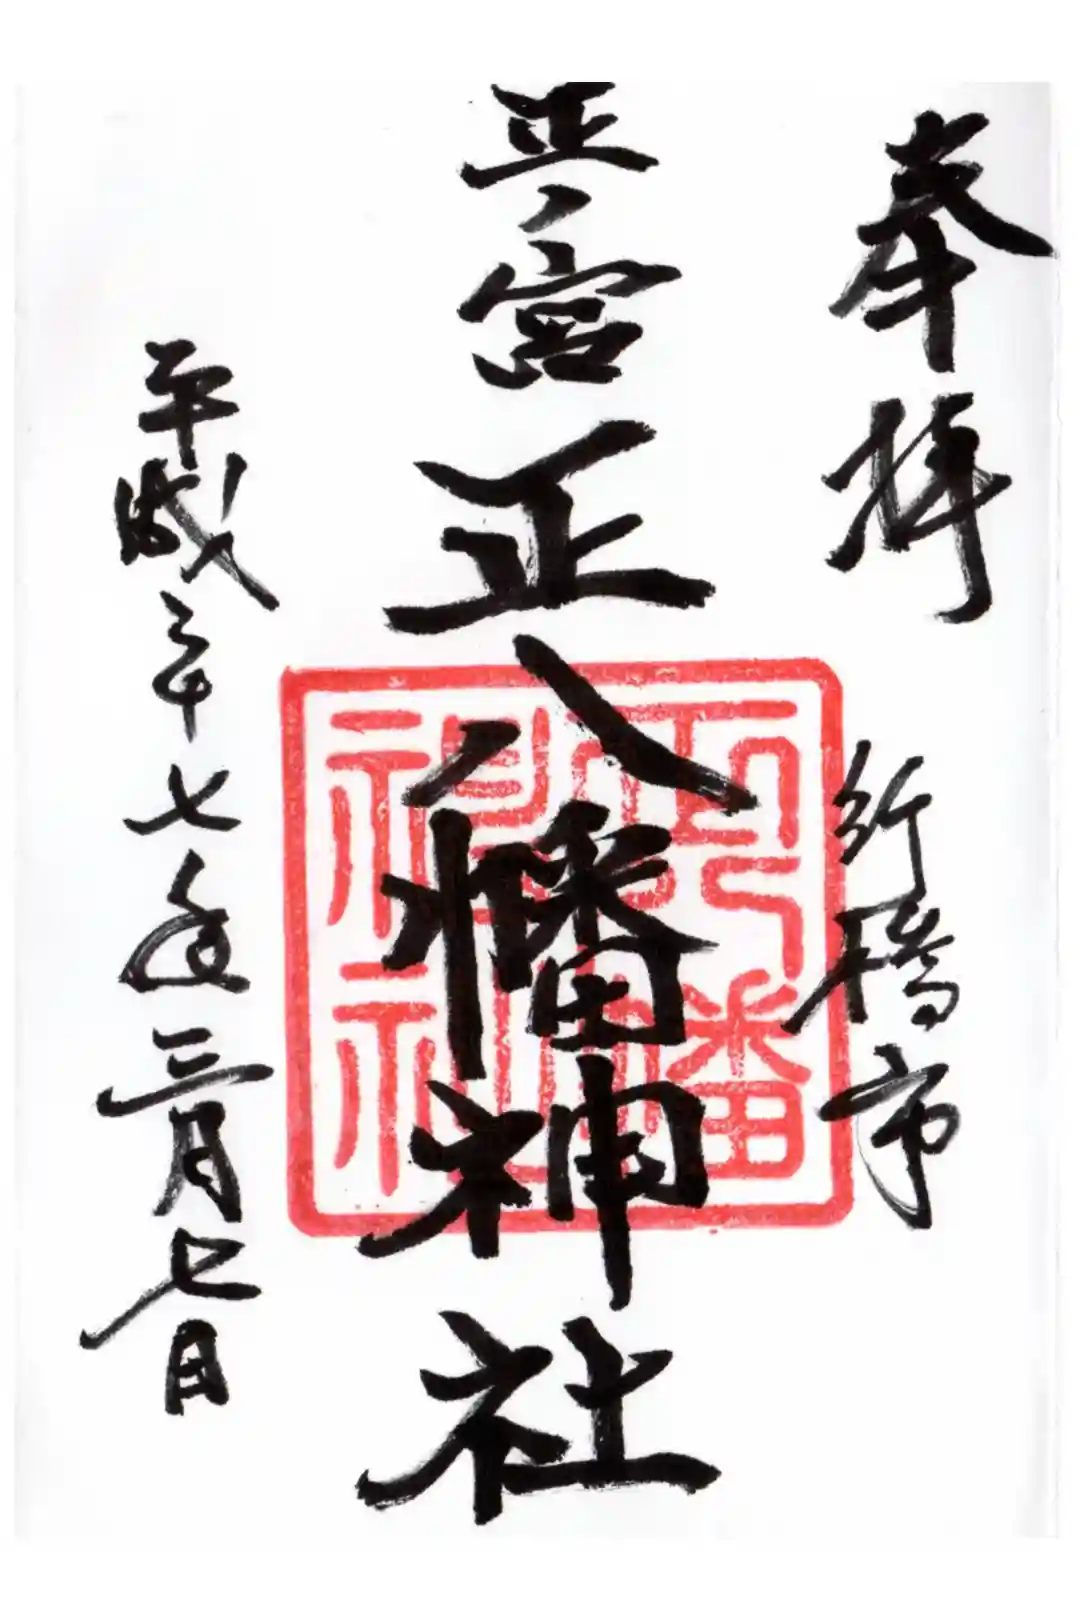 奉拝
行橋市
正ノ宮
正八幡神社
平成二十七年三月七日
正八幡神社